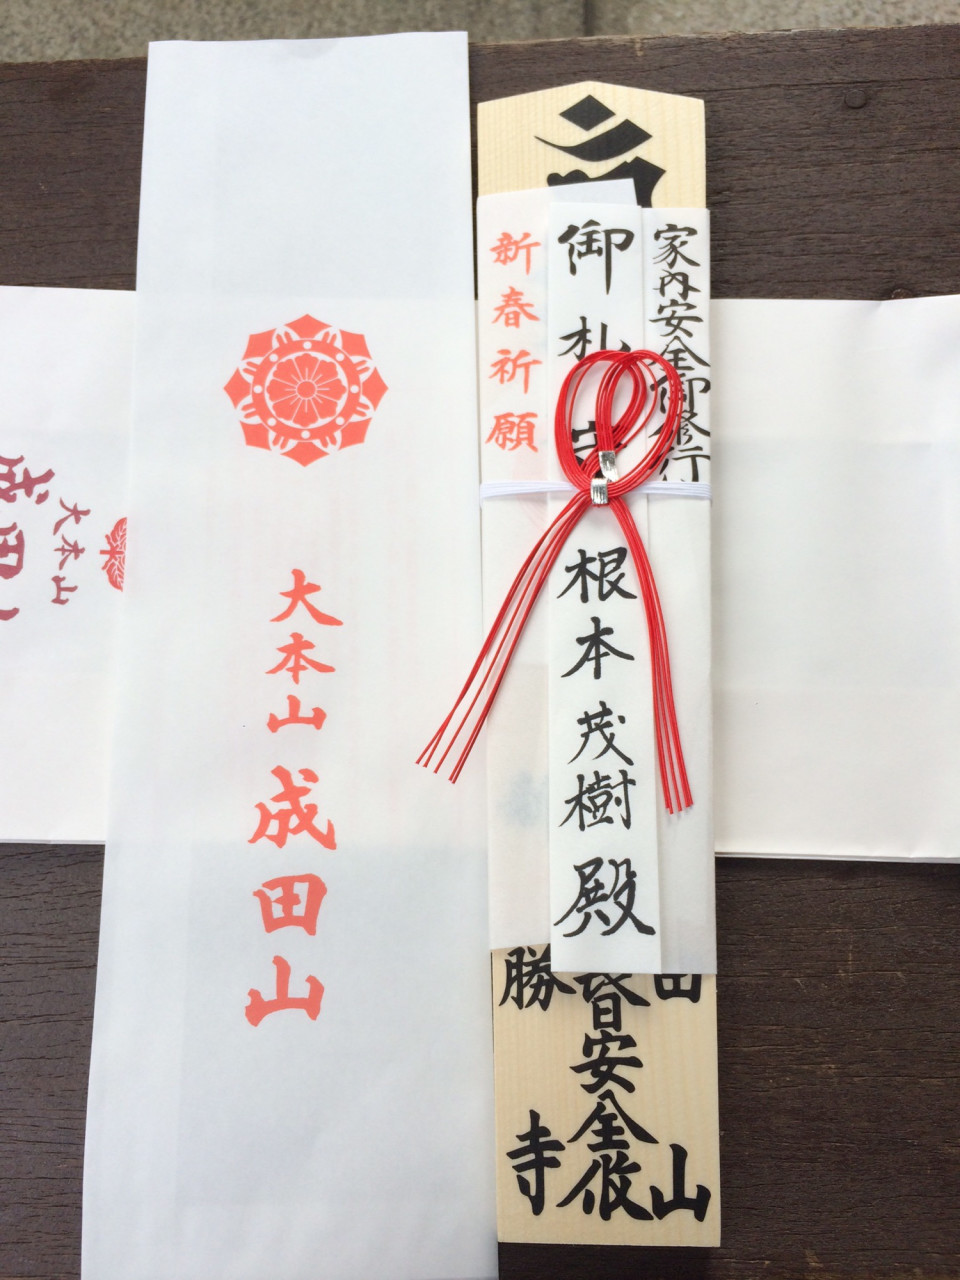 家内安全御修行
御札
根本茂樹殿
新春祈願
田山
安全攸
勝寺
大本山成田山
大本山
成田